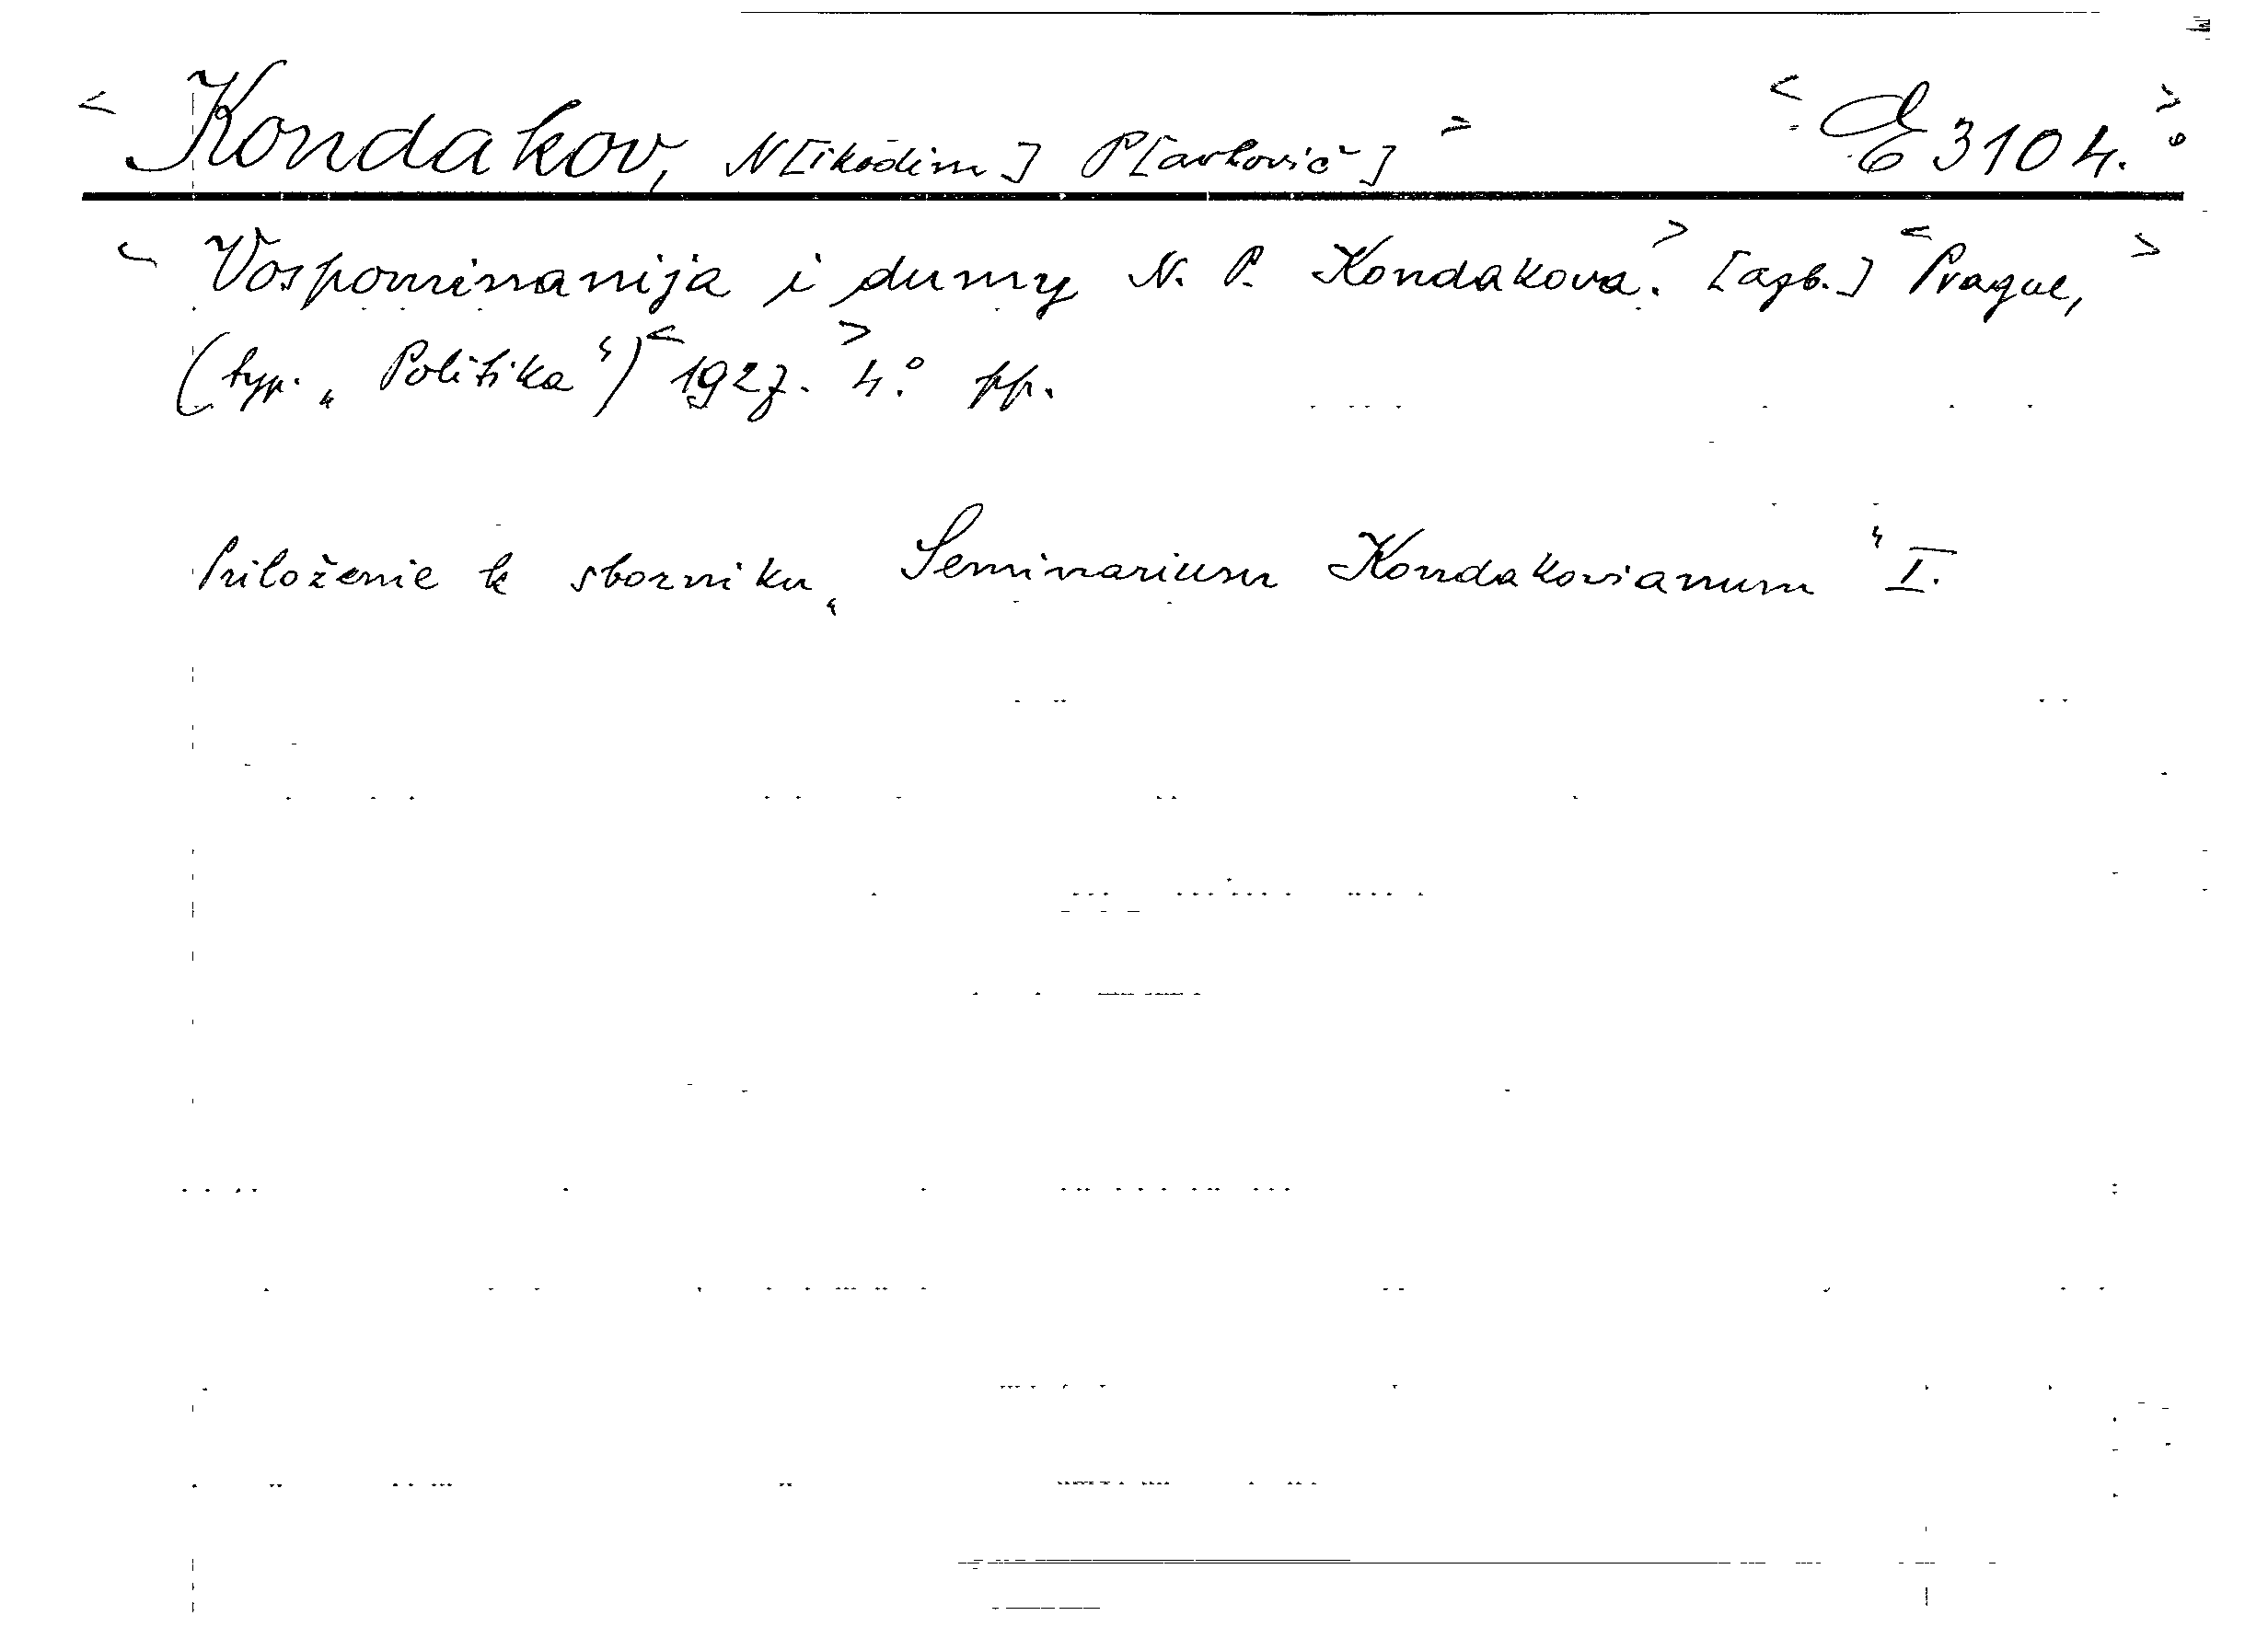 < Kondakov, N[ikodim] P[avlovič] > < E 3104.° >
< Vospominanija i dumy N. P. Kondakova. > [azb.] < Prague, >
(typ. „Politika“) < 1927. > 4.° pp.
Priloženie k sborniku „Seminarium Kondakovianum“ I.